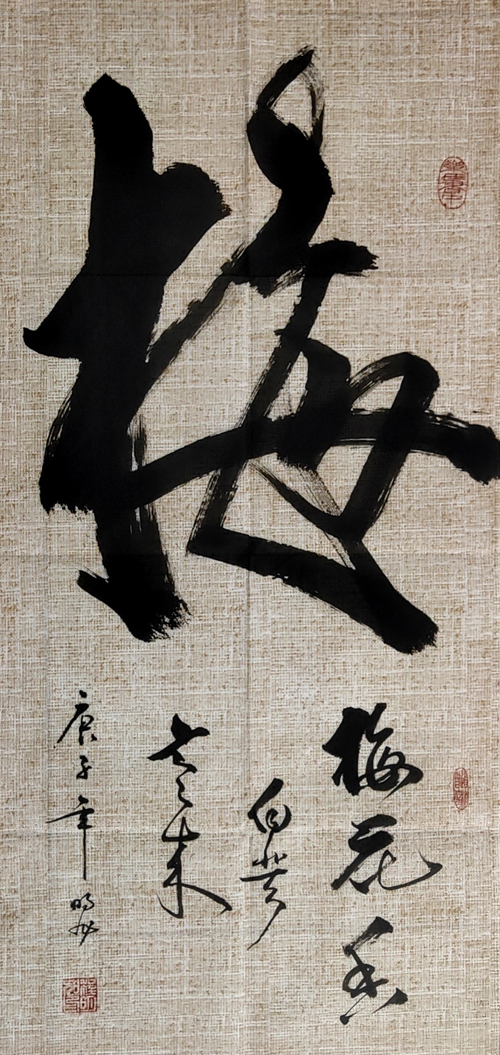 梅
梅花香
自苦
寒来
庚子年